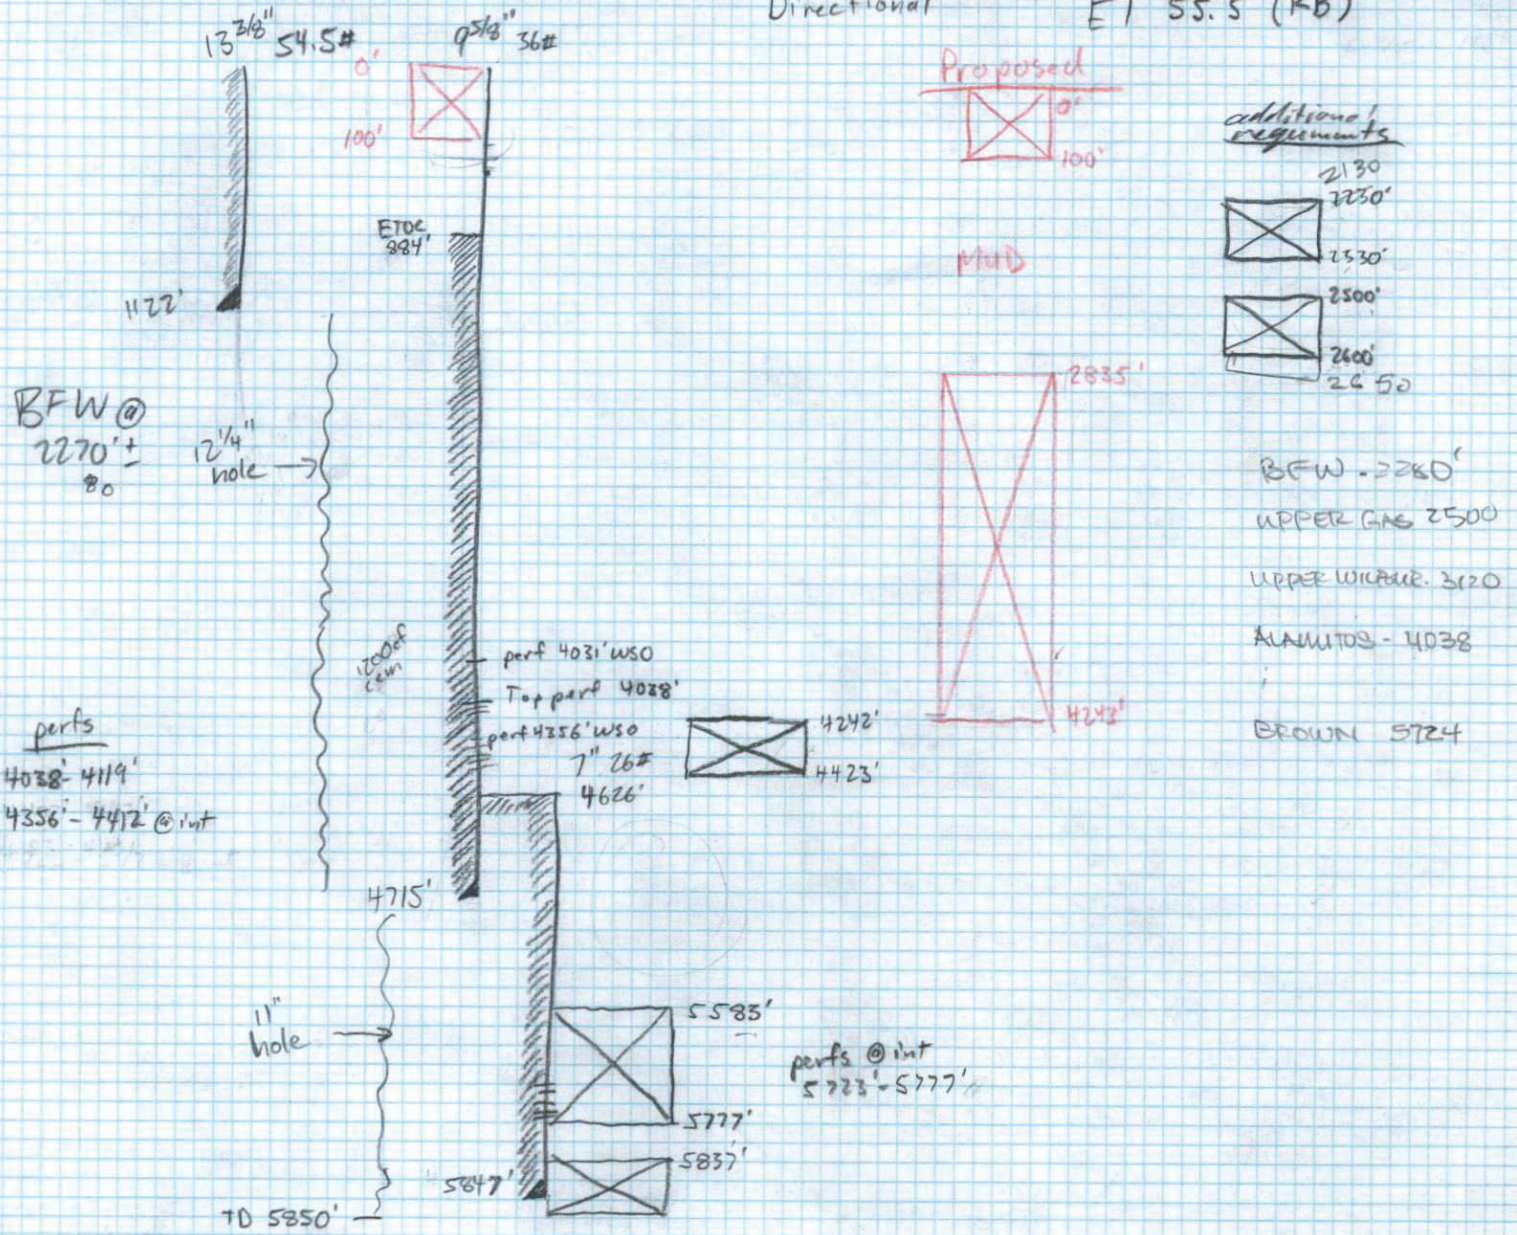 Directional
El 55.5 (KB)
13 3/8" 54.5#
9 5/8" 36#
0'
100'
Proposed
0'
100'
additional
requirements
2130
2230'
2530'
2500'
2600'
2650
ETOC
884'
MUD
1122'
BFW @
2270' ±
80
12 1/4"
hole
2835'
4243'
BFW - 2280'
UPPER GAS 2500
UPPER 3120
ALAMITOS - 4038
BROWN 5724
1200cf
cem
perf 4031' WSO
Top perf 4038'
perf 4356' WSO
7" 26#
4626'
4242'
4423'
perfs
4038' - 4119'
4356' - 4412' @ int
4715'
11"
hole
5583'
5777'
perfs @ int
5723' - 5777'
5837'
5847'
TD 5850'